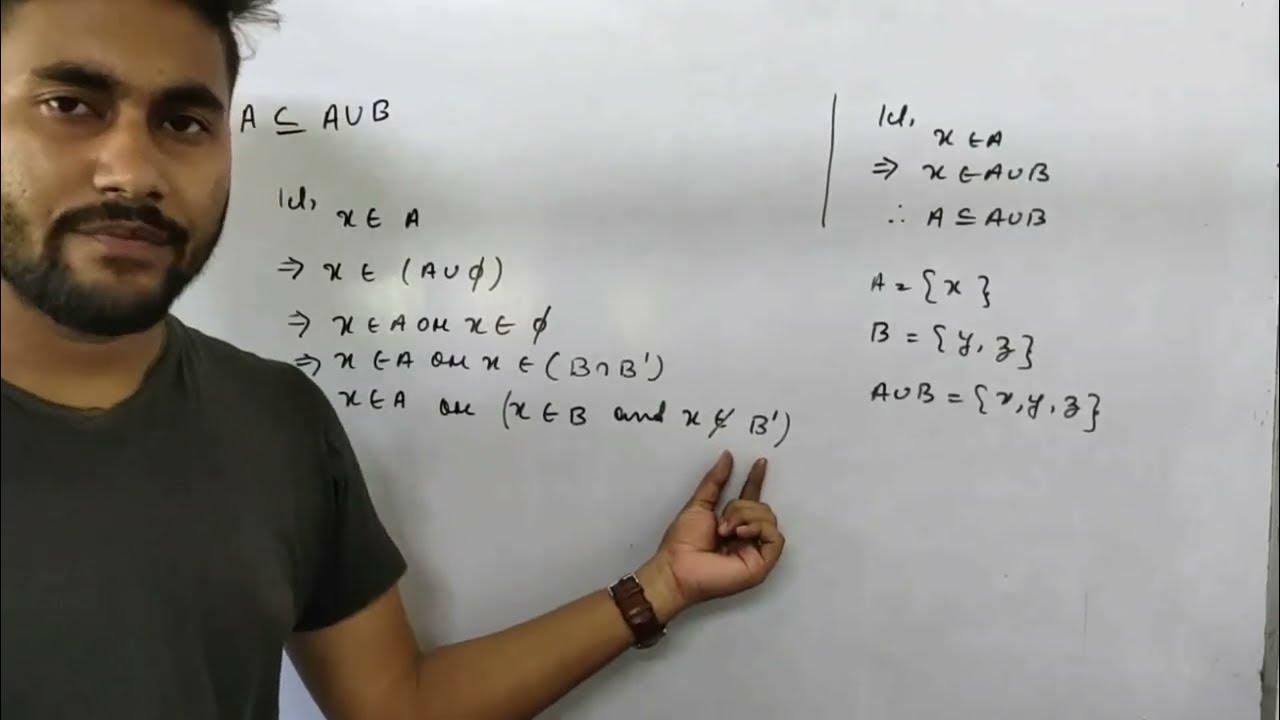 A ⊆ A∪B
let, x ∈ A
⇒ x ∈ (A∪ϕ)
⇒ x ∈ A or x ∈ ϕ
⇒ x ∈ A or x ∈ (B∩B')
x ∈ A or (x ∈ B and x ∉ B')
let, x ∈ A
⇒ x ∈ A∪B
∴ A ⊆ A∪B
A = {x}
B = {y, z}
A∪B = {x, y, z}